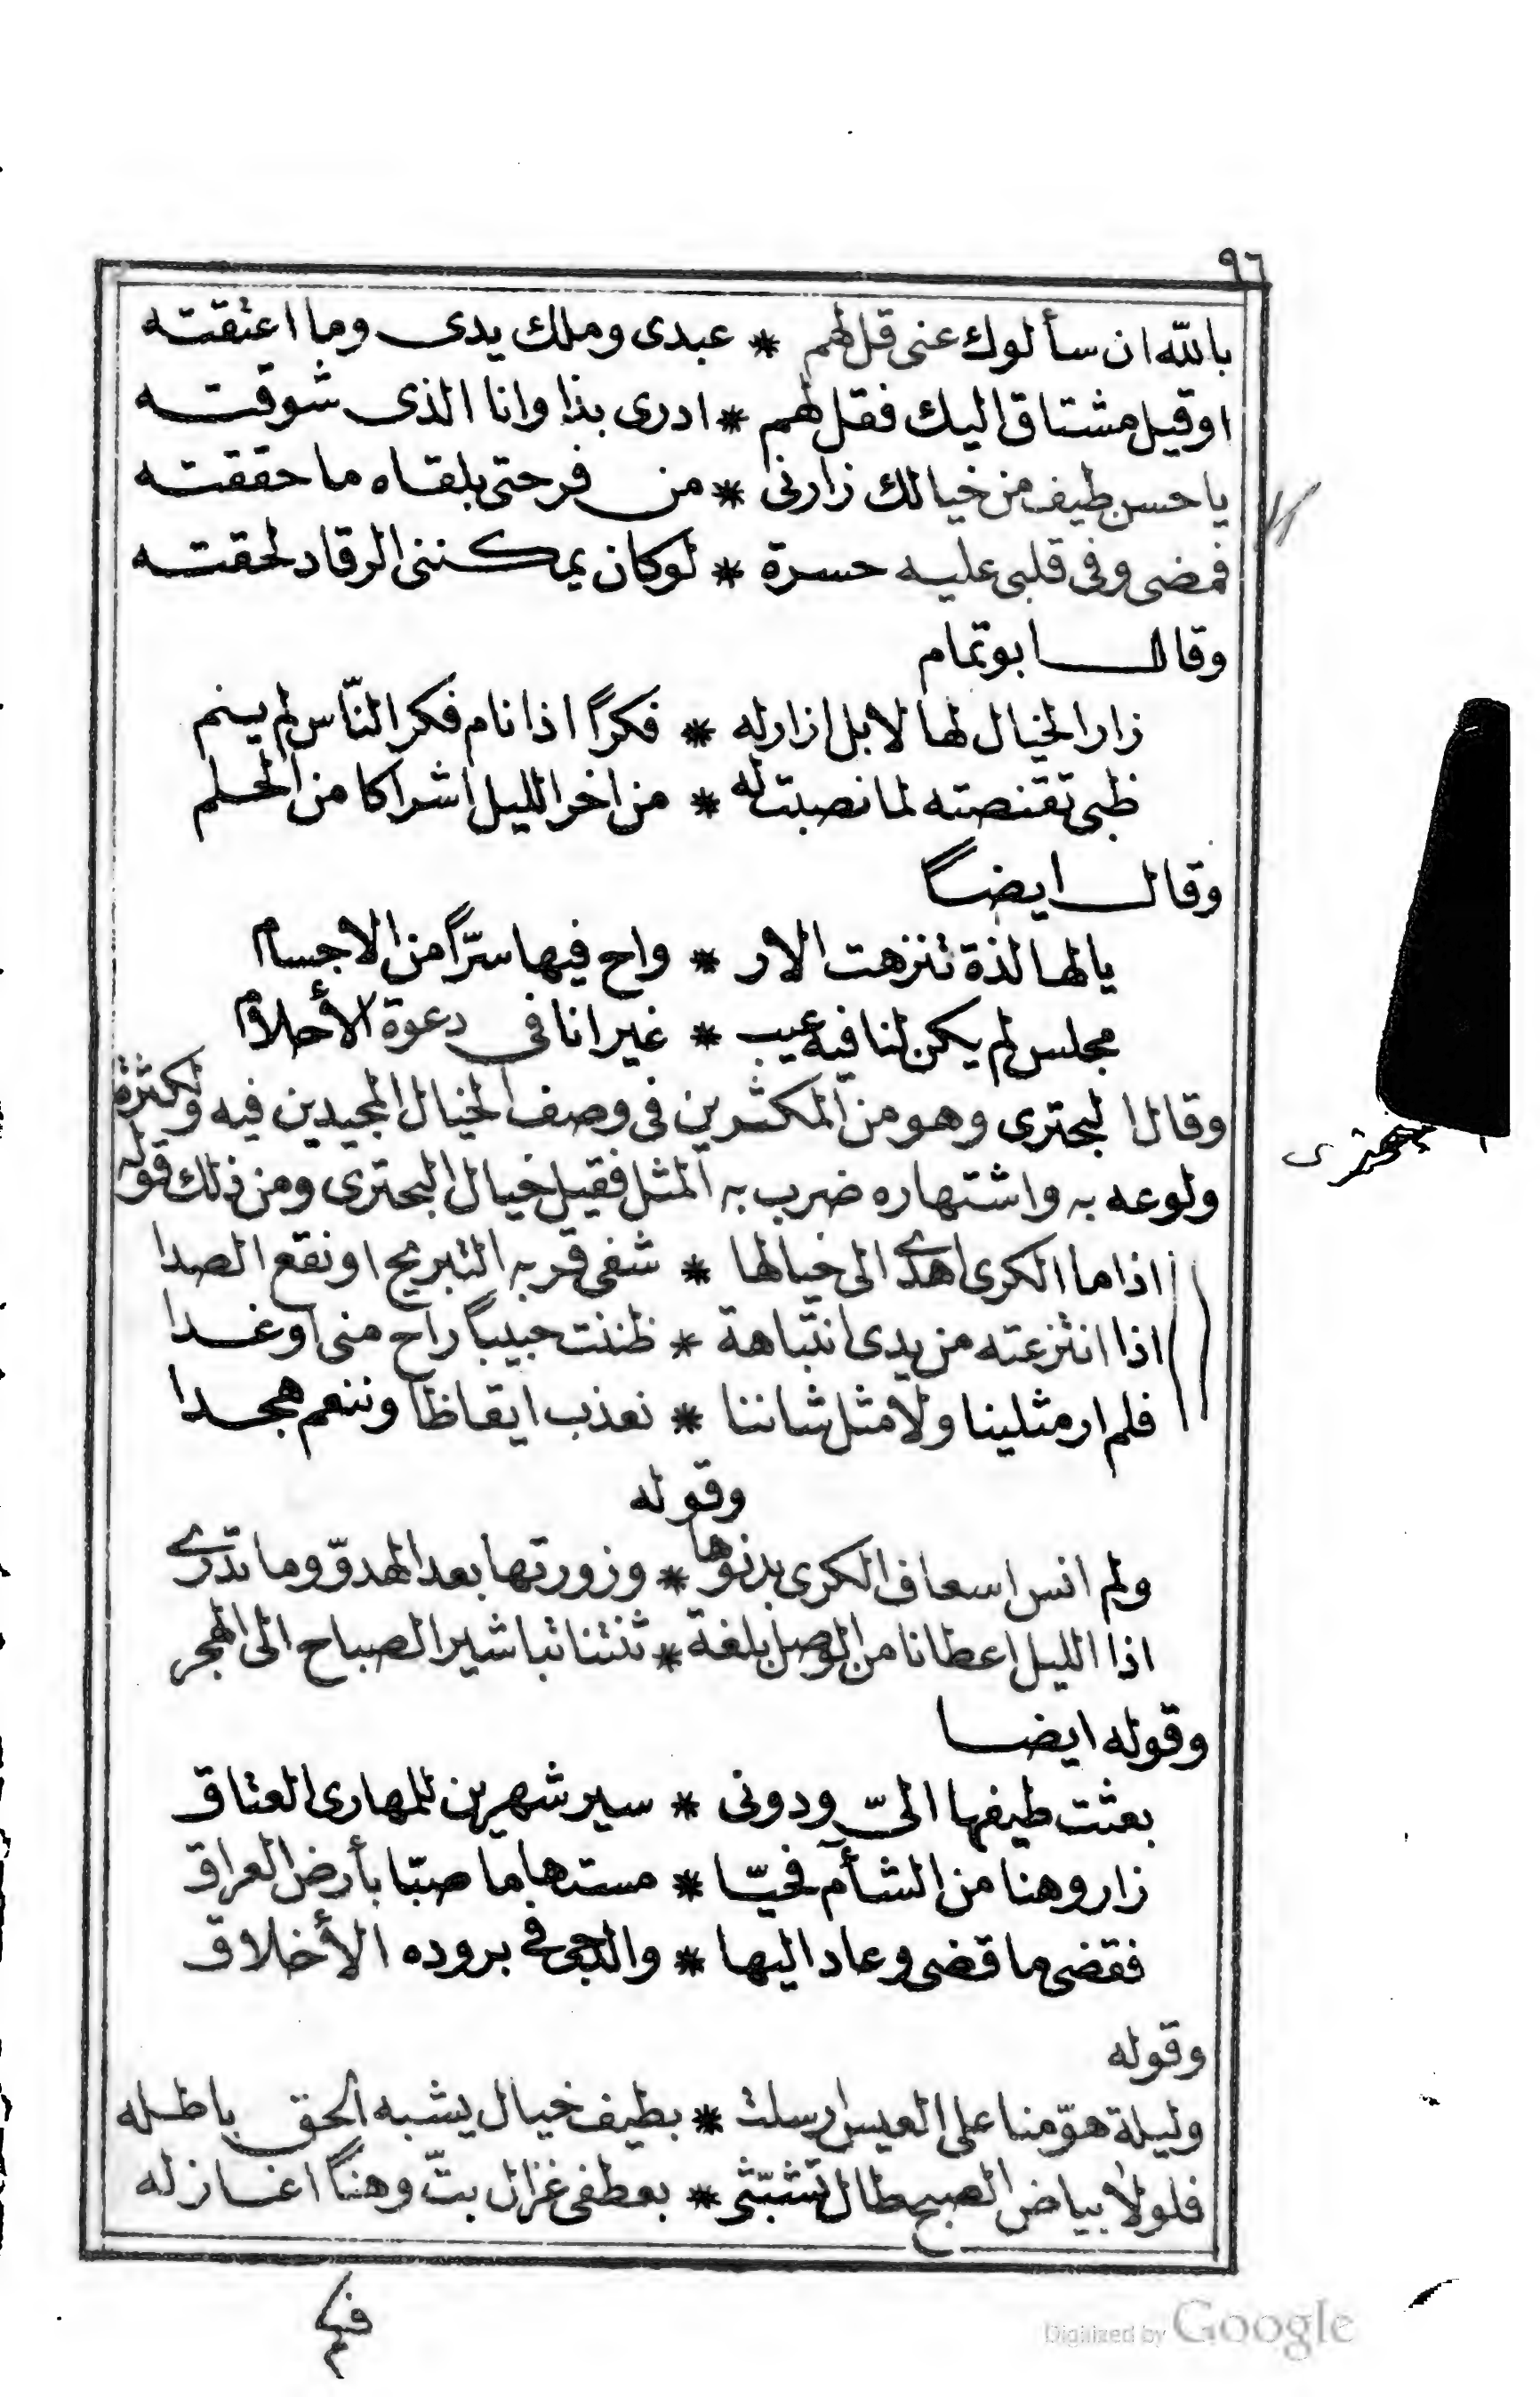 ٩٦
بالله ان سألوك عنى قل لهم * عبدى وملك يدى وما اعتقته
اوقيل مشتاق اليك فقل لهم * ادرى بذا وانا الذى شوقته
ياحسن طيف من خيالك زارنى * من فرحتى بلقاه ما حققته
فمضى وفى قلبى عليه حسرة * لوكان يمكننى الرقاد لحقته
وقال ابوتمام
زار الخيال لها لا بل ازارله * فكرًا اذا نام فكر النّاس لم ينم
ظبى تقنصته لما نصبت له * من اخر الليل اشراكا من الحلم
وقال ايضاً
يالها لذة تنزهت الار * واح فيها سرّاً من الاجسام
مجلس لم يكن لنا فيه عيب * غير انا فى دعوة الأحلام
وقال البحترى وهو من المكثرين فى وصف الخيال المجيدين فيه ولكثرة
ولوعه به واشتهاره ضرب به المثل فقيل خيال البحترى ومن ذلك قوله
بحترى
اذا ما الكرى اهدى الى خيالها * شفى قربه التبريح او نقع الصدا
اذا انتزعته من يدى انتباهة * ظننت حبيباً راح منى او غدا
فلم ار مثلينا ولا مثل شاننا * نعذب ايقاظاً وننعم هجدا
وقوله
ولم انس اسعاف الكرى بدنوّها * وزورتها بعد الهدوّ وما تدرى
اذا الليل اعطانا من الوصل بلغة * ثنتنا تباشير الصباح الى الهجر
وقوله ايضا
بعثت طيفها الىّ ودونى * سير شهرين للمهارى العتاق
زار وهنا من الشأم فحيّا * مستهاما صبّا بأرض العراق
فقضى ما قضى وعاد اليها * والدجى فى بروده الأخلاق
وقوله
وليلة هوّمنا على العيس ارسلت * بطيف خيال يشبه الحق باطله
فلولا بياض الصبح طال تشبّثى * بعطفى غزال بتّ وهنًا اغازله
فكم
Digitized by Google